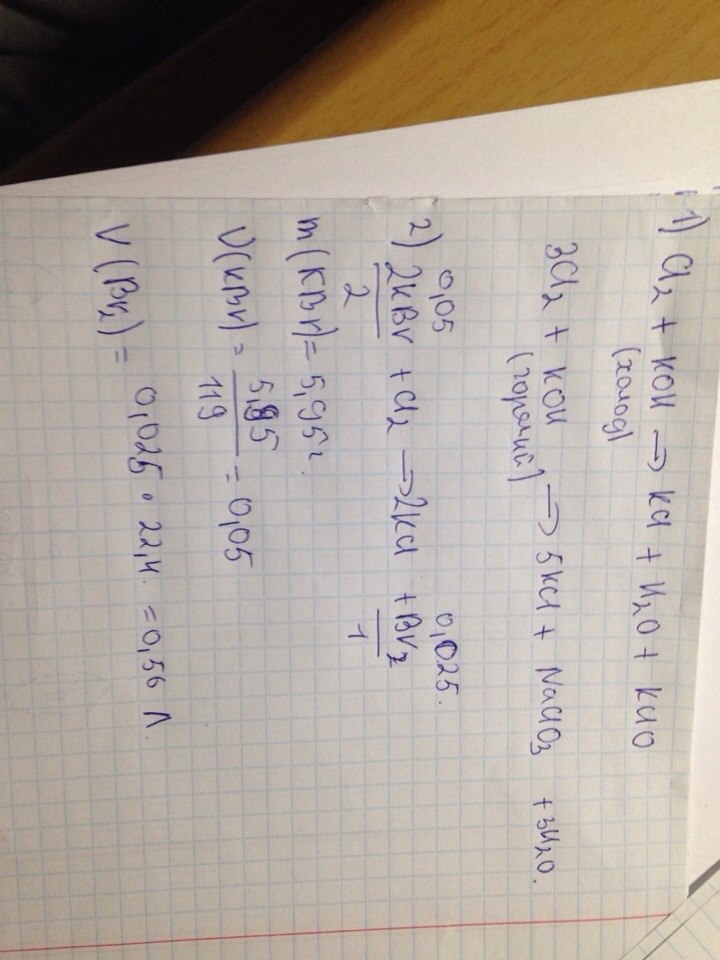 1) Cl₂ + KOH → KCl + H₂O + KClO
(холод)
3Cl₂ + KOH → 5KCl + NaClO₃ + 3H₂O.
(горячий)
0,05 0,025.
2) 2KBr + Cl₂ → 2KCl + Br₂
2 1
m(KBr) = 5,95 г.
ν(KBr) = 5,95 / 119 = 0,05
V(Br₂) = 0,025 • 22,4. = 0,56 л.